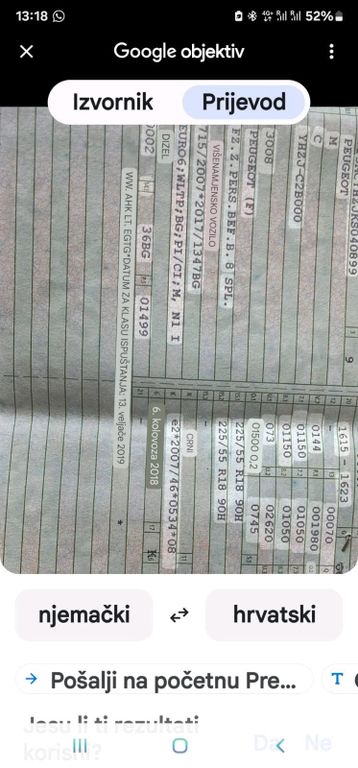 13:18
52%
Google objektiv
Izvornik
Prijevod
PEUGEOT
M
C
YHZJ-C2B000
3008
PEUGEOT (F)
FZ.Z.PERS.BEF.B. 8 SPL.
VIŠENAMJENSKO VOZILO
715/2007*2017/1347BG
EURO6;WLTP;BG;PI/CI;M, N1 I
DIZEL
0002
36BG
01499
WW. AHK LT. EGTG*DATUM ZA KLASU ISPUŠTANJA: 13. veljače 2019
9
1615 - 1623
00070
0144
001980
01150
01050
01150
01050
073
02620
0745
225/55 R18 90H
225/55 R18 90H
-
CRNI
e2*2007/46*0534*08
6. kolovoza 2018
*
njemački
hrvatski
Pošalji na početnu Pre...
Jesu li ti rezultati
korisni?
Da
Ne